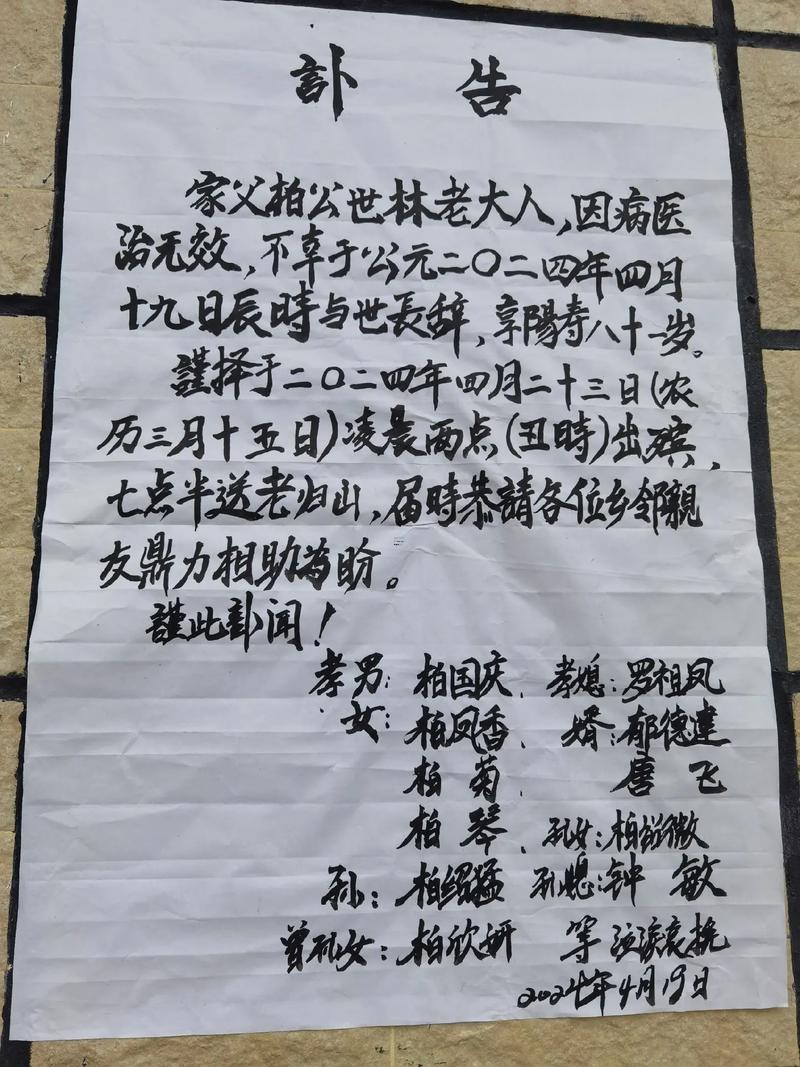 訃 告
家父柏公世林老大人，因病医
治无效，不幸于公元二〇二四年四月
十九日辰時与世长辞，享陽寿八十一岁。
謹择于二〇二四年四月二十三日（农
历三月十五日）凌晨两点（丑時）出殡，
七点半送老归山，届時恭請各位乡邻親
友鼎力相助为盼。
謹此訃闻！
孝男：柏国庆、 孝媳：罗祖凤
女：柏凤香、 婿：郁德達
柏 菊、 唐 飞
柏 琴、 孙女：柏 微
孙：柏绍猛 孙媳：钟 敏
曾孙女：柏欣妍 等 泣淚哀挽
2024年4月19日